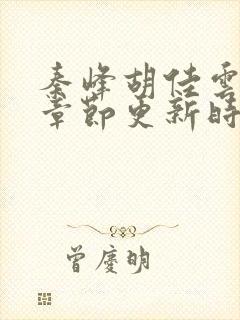 秦峰胡佳雲
章節更新時
曾慶明